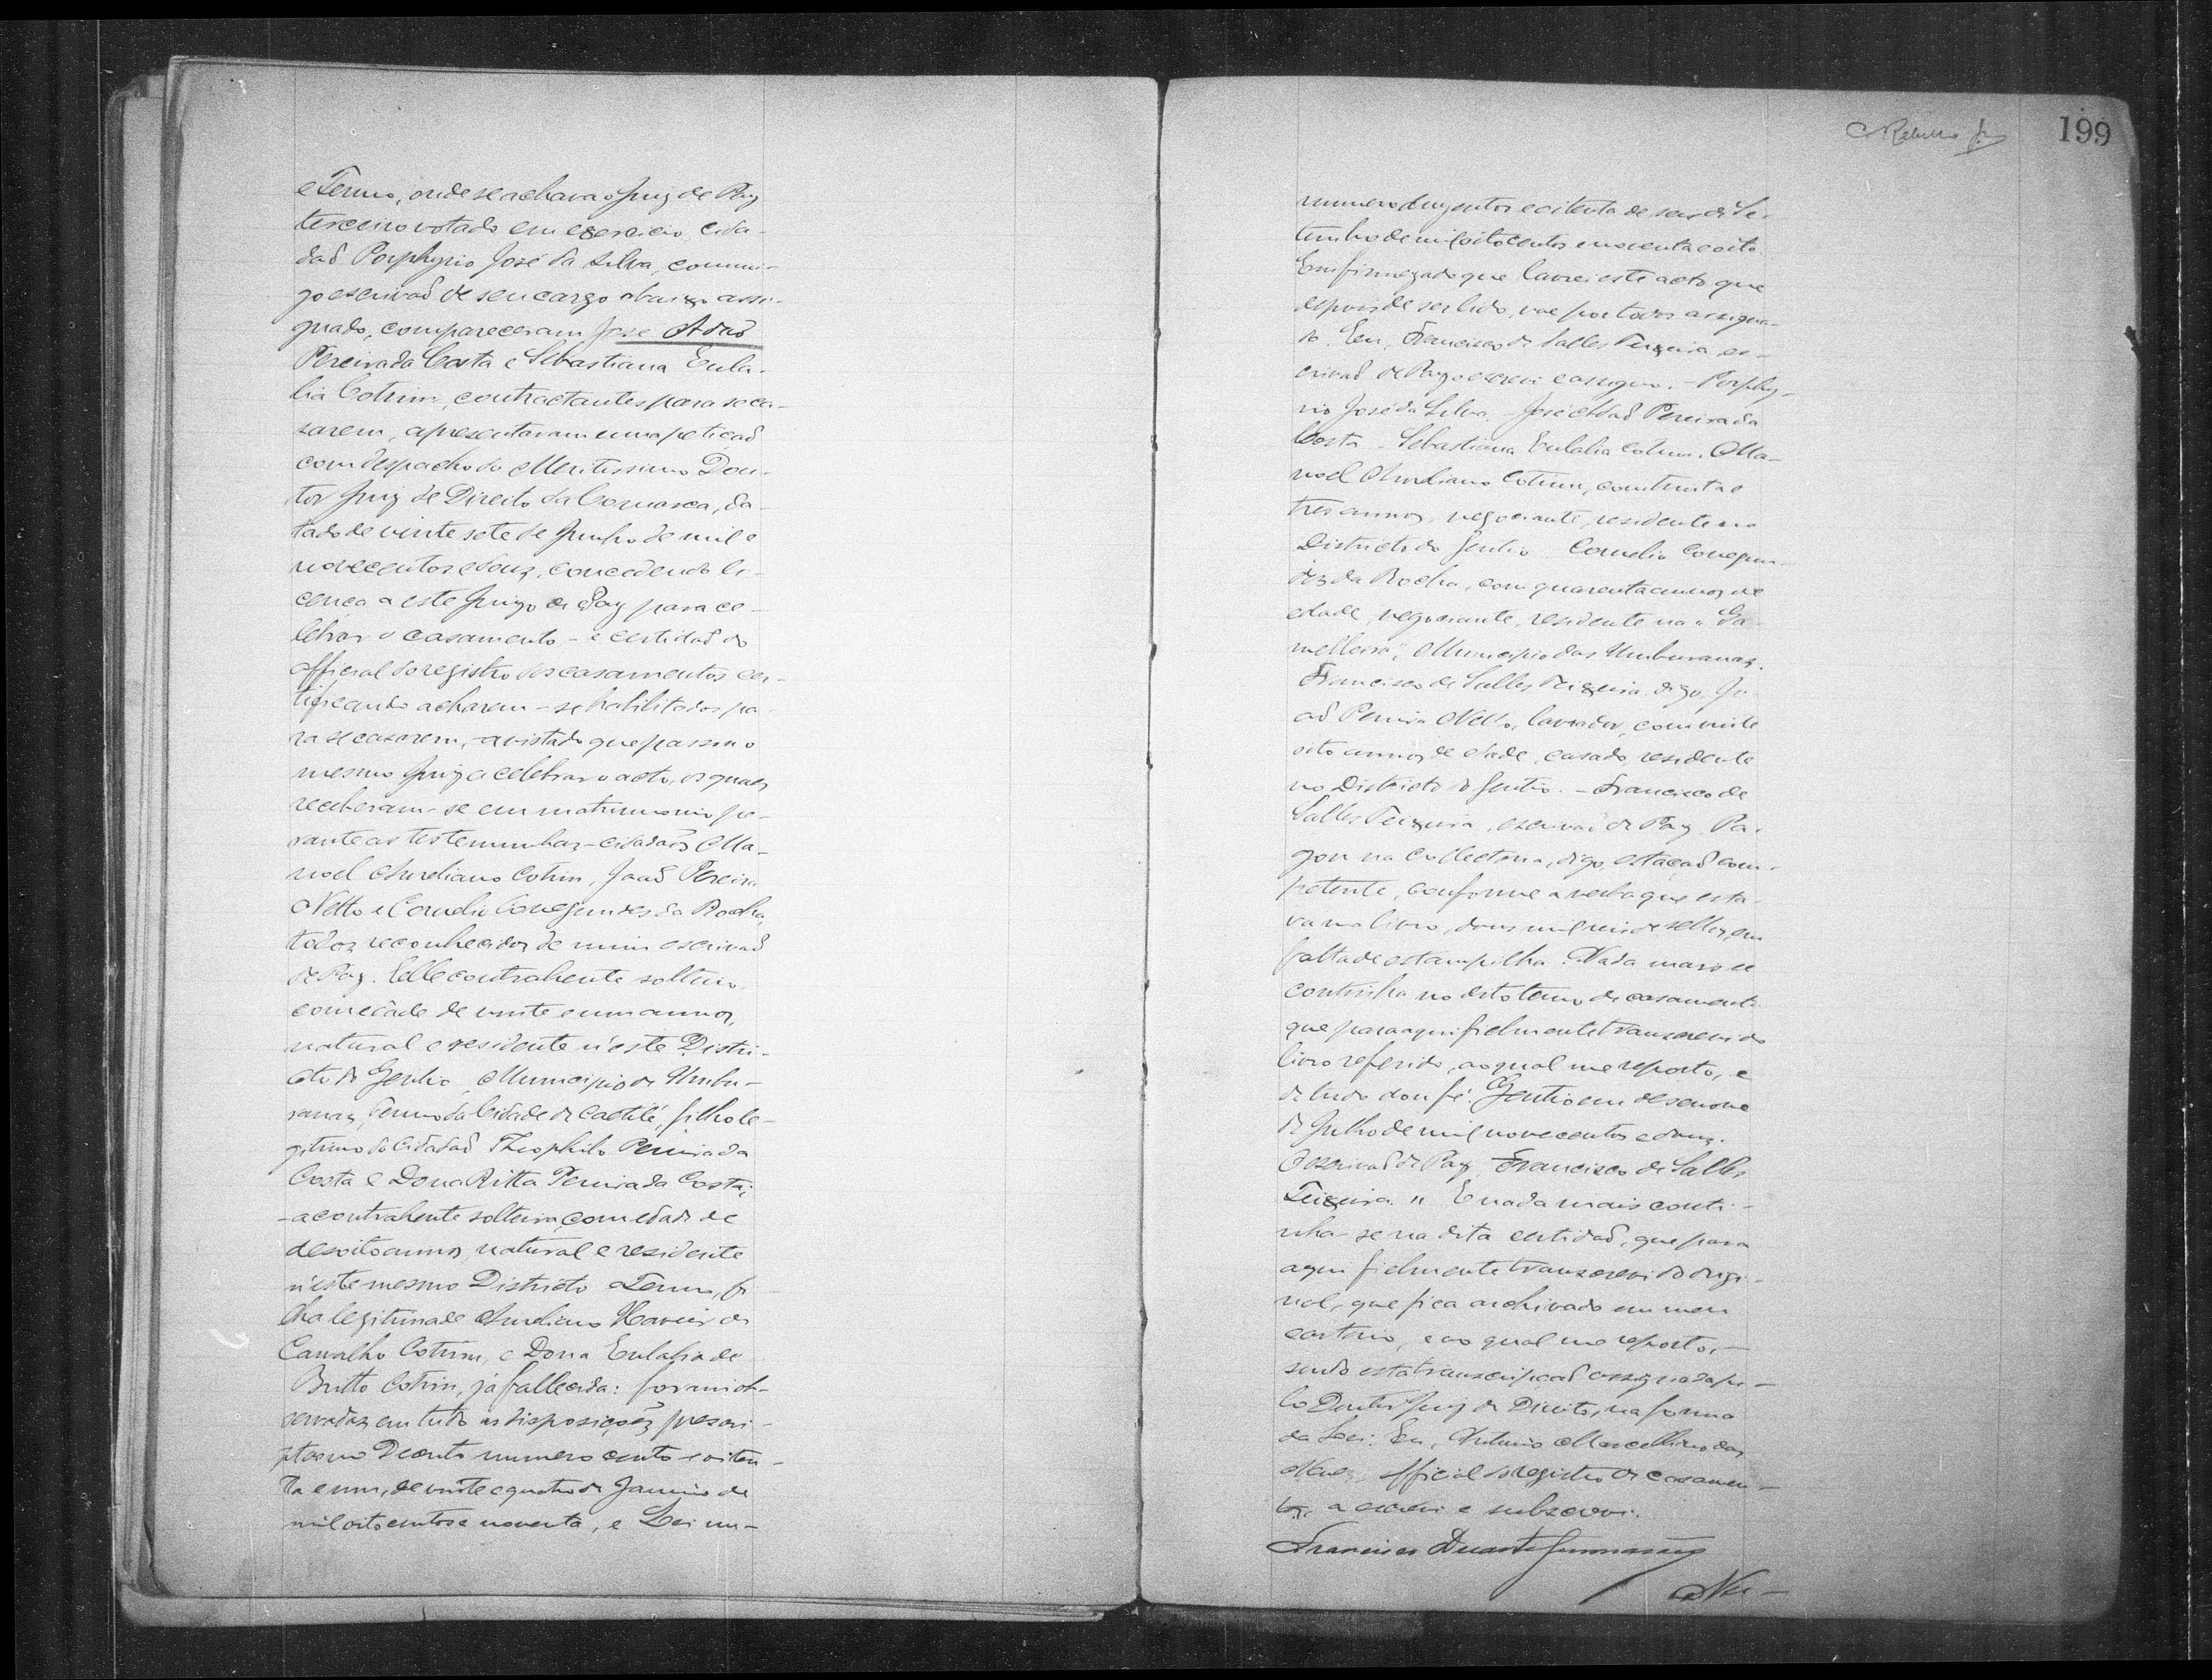 e Termo, onde se achava o Juiz de Paz
terceiro votado em exercicio, cida-
dad Porphyrio José da Silva, commi-
go escrivad de seu cargo abaixo assi-
gnado, compareceram José Adad
Pereira da Costa e Sebastiana Eula-
lia Cotrim, contractantes para se ca-
sarem, apresentaram uma peticad
com despacho do Meritissimo Dou-
tor Juiz de Direito da Comarca, da-
tado de vinte sete de Junho de mil e
novecentos e dous, concedendo li-
cença a este Juizo de Paz para ce-
lebrar o casamento - e certidad do
official do registro dos casamentos cer-
tificando acharem-se habilitados pa-
ra se casarem, - a vista do que passou o
mesmo Juiz a celebrar o acto, os quaes
receberam-se em matrimonio pe-
rante as testemunhas - cidadãos Ma-
noel Aureliano Cotrim, Joad Pereira
Netto e Cornelio Conegundes da Rocha,
todos reconhecidos de mim escrivad
de Paz. Elle contrahente solteiro,
com edade de vinte e um annos,
natural e residente n'este Distri-
cto do Gentio, Municipio de Umbu-
ranas, Termo da Cidade de Caetité, filho le-
gitimo do Cidadad Theophilo Pereira da
Costa e Dona Ritta Pereira da Costa;
- a contrahente solteira, com edade de
desoito annos, natural e residente
n'este mesmo Districto e Termo, fi-
lha legitima de Aureliano Xavier de
Carvalho Cotrim, e Dona Eulalia de
Britto Cotrim, já fallecida: foram ob-
servadas em tudo as disposições prescri-
ptas no Decreto numero cento e oiten-
ta e um, de vinte e quatro de Janeiro de
mil oitocentos e noventa, e Lei nu-
C. Rebello
199
numero duzentos e oitenta de seis de Se-
tembro de mil oitocentos e noventa e oito.
Em firmeza do que lavrei este acto que
depois de ser lido, vae por todos assigna-
do. Eu, Francisco de Salles Teixeira es-
crivad de Paz o escrevi e assigno. - Porphy-
rio José da Silva. - José Adad Pereira da
Costa - Sebastiana Eulalia Cotrim. Ma-
noel Aureliano Cotrim, com trinta e
tres annos, negociante, residente no
Districto do Gentio Cornelio Conegun-
des da Rocha, com quarenta annos de
edade, negociante, residente na "Ga-
melleira", Municipio das Umburanas.
Francisco de Salles Teixeira, digo, Jo-
ad Pereira Netto, lavrador, com vinte
oito annos de edade, casado, residente
no Districto do Gentio. - Francisco de
Salles Teixeira, escrivad de Paz. Pa-
gou na Collectoria, digo, estaçad com-
petente, conforme a verba que esta-
va no livro, dous mil reis de sellos, em
falta de estampilha. Nada mais se
continha no dito termo de casamento
que para aqui fielmente transcrevi do
livro referido, ao qual me reporto, e
de tudo dou fé. Gentio em desenove
de Julho de mil novecentos e dous.
O escrivad de Paz, Francisco de Salles
Teixeira." E nada mais conti-
nha-se na dita certidad, que para
aqui fielmente transcrevi do origi-
nal, que fica archivado em meu
cartorio, e ao qual me reporto, -
sendo esta transcripcad assignada pe-
lo Doutor Juiz de Direito, na forma
da Lei. Eu, Antonio Marcellino das
Neves, official do registro de casamen-
tos, a escrevi e subscrevi.
Francisco Duarte Guimarães
Nu-